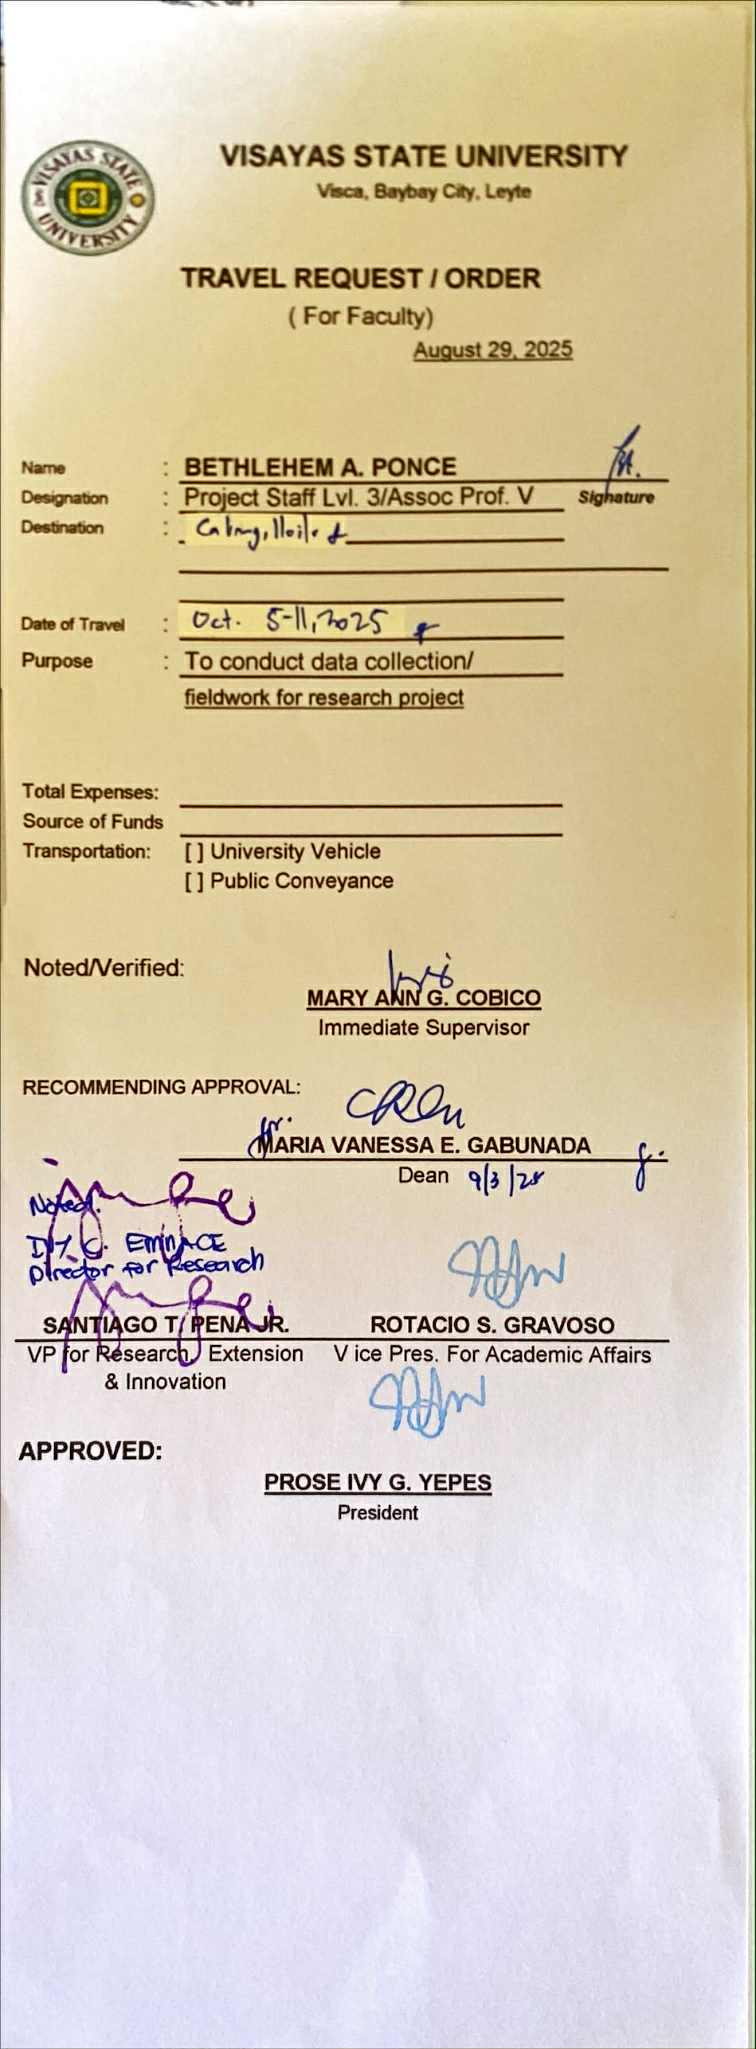 VISAYAS STATE UNIVERSITY
VISAYAS STATE UNIVERSITY
Visca, Baybay City, Leyte
TRAVEL REQUEST / ORDER
( For Faculty)
August 29, 2025
Name : BETHLEHEM A. PONCE
Designation : Project Staff Lvl. 3/Assoc Prof. V Signature
Destination :
Date of Travel : Oct. 5-11, 2025
Purpose : To conduct data collection/
fieldwork for research project
Total Expenses:
Source of Funds
Transportation: [ ] University Vehicle
[ ] Public Conveyance
Noted/Verified:
MARY ANN G. COBICO
Immediate Supervisor
RECOMMENDING APPROVAL:
for.
MARIA VANESSA E. GABUNADA
Dean 9/3/25
Noted.
IVY C. EMNACE
Director for Research
SANTIAGO T. PENA JR. ROTACIO S. GRAVOSO
VP for Research, Extension V ice Pres. For Academic Affairs
& Innovation
APPROVED:
PROSE IVY G. YEPES
President